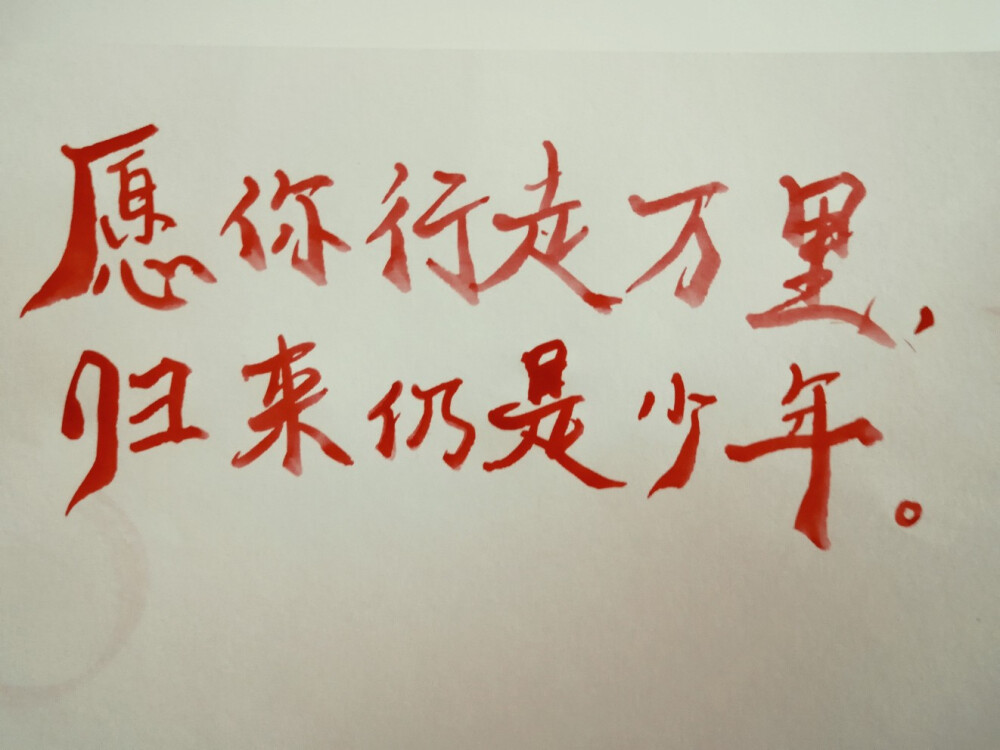 愿你行走万里，
归来仍是少年。